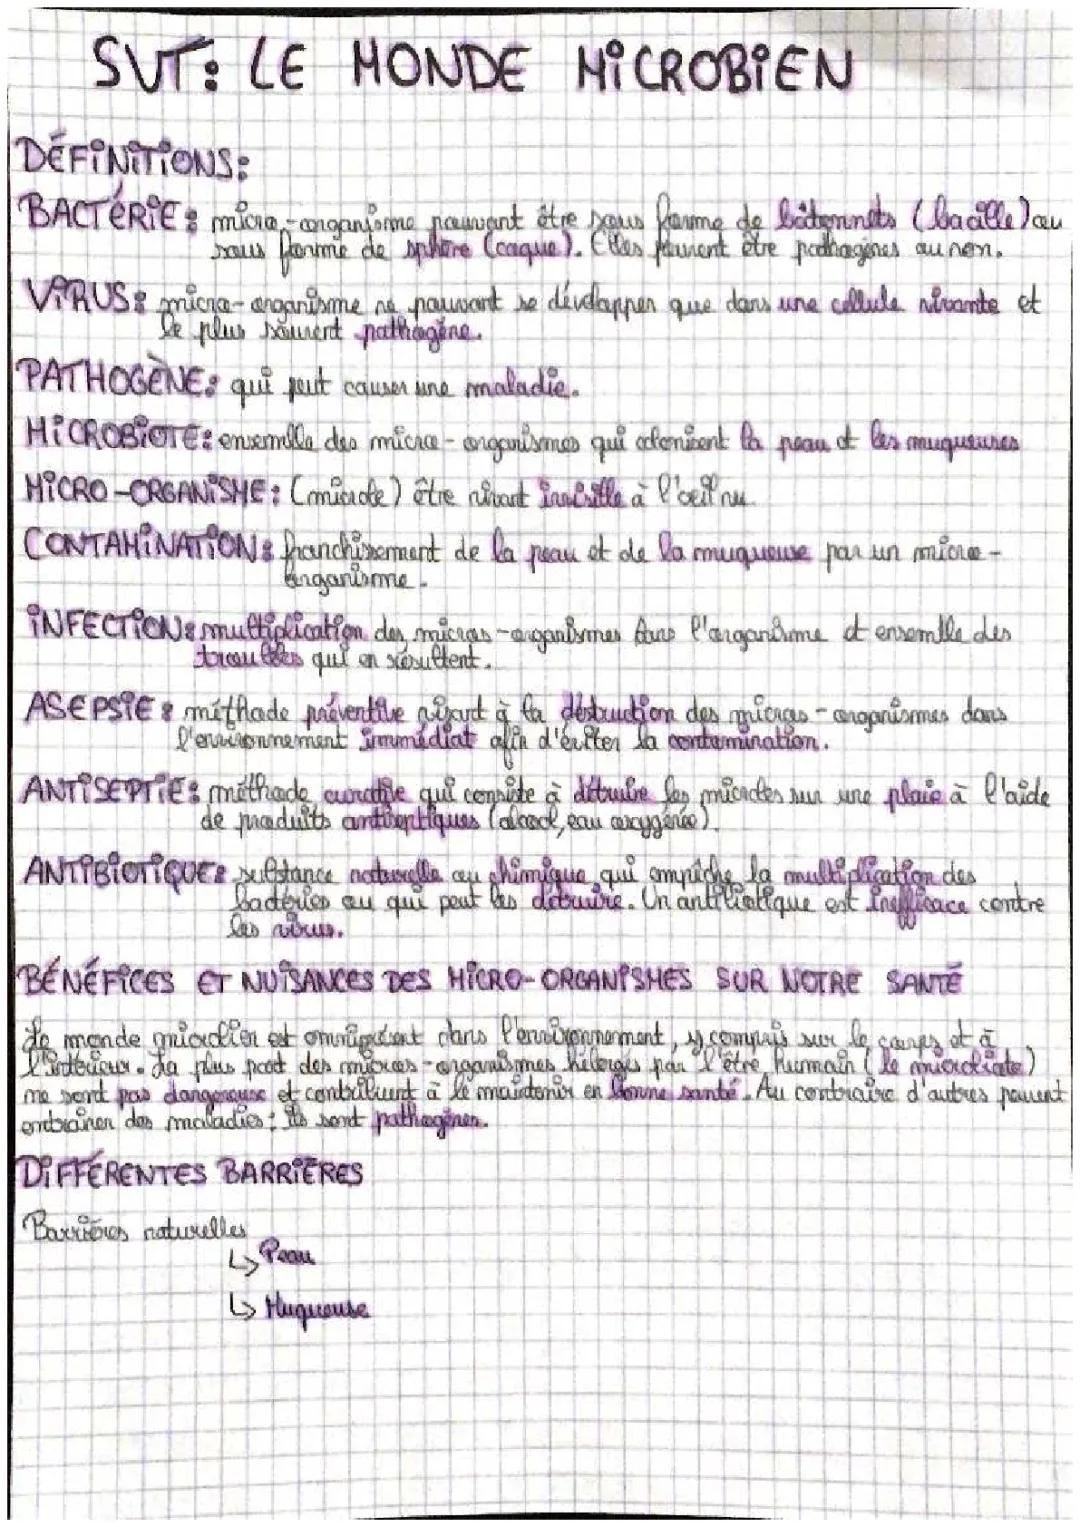 SVT: LE MONDE MiCROBiEN
DÉFiNiTiONS:
BACTÉRiE: micro-organisme pouvant être sous forme de bâtonnets (bacille) ou
sous forme de sphère (coque). Elles peuvent être pathogènes ou non.
ViRUS: micro-organisme ne pouvant se développer que dans une cellule vivante et
le plus souvent pathogène.
PATHOGÈNE: qui peut causer une maladie.
MiCROBiOTE: ensemble des micro-organismes qui colonisent la peau et les muqueuses
MiCRO-ORGANiSME: (microbe) être vivant invisible à l'oeil nu.
CONTAMiNATiON: franchissement de la peau et de la muqueuse par un micro-
organisme.
iNFECTiON: multiplication des micros-organismes dans l'organisme et ensemble des
troubles qui en résultent.
ASEPSiE: méthode préventive visant à la destruction des micros-organismes dans
l'environnement immédiat afin d'éviter la contamination.
ANTiSEPTiE: méthode curative qui consiste à détruire les microbes sur une plaie à l'aide
de produits antiseptiques (alcool, eau oxygénée).
ANTiBiOTiQUE: substance naturelle ou chimique qui empêche la multiplication des
bactéries ou qui peut les détruire. Un antibiotique est inefficace contre
les virus.
BÉNÉFiCES ET NUiSANCES DES MiCRO-ORGANiSMES SUR NOTRE SANTÉ
Le monde microbien est omniprésent dans l'environnement, y compris sur le corps et à
l'intérieur. La plus part des micros-organismes hébergés par l'être humain (le microbiote)
ne sont pas dangereuse et contribuent à le maintenir en bonne santé. Au contraire d'autres peuvent
entraîner des maladies: ils sont pathogènes.
DiFFÉRENTES BARRiÈRES
Barrières naturelles
↳ Peau
↳ Muqueuse